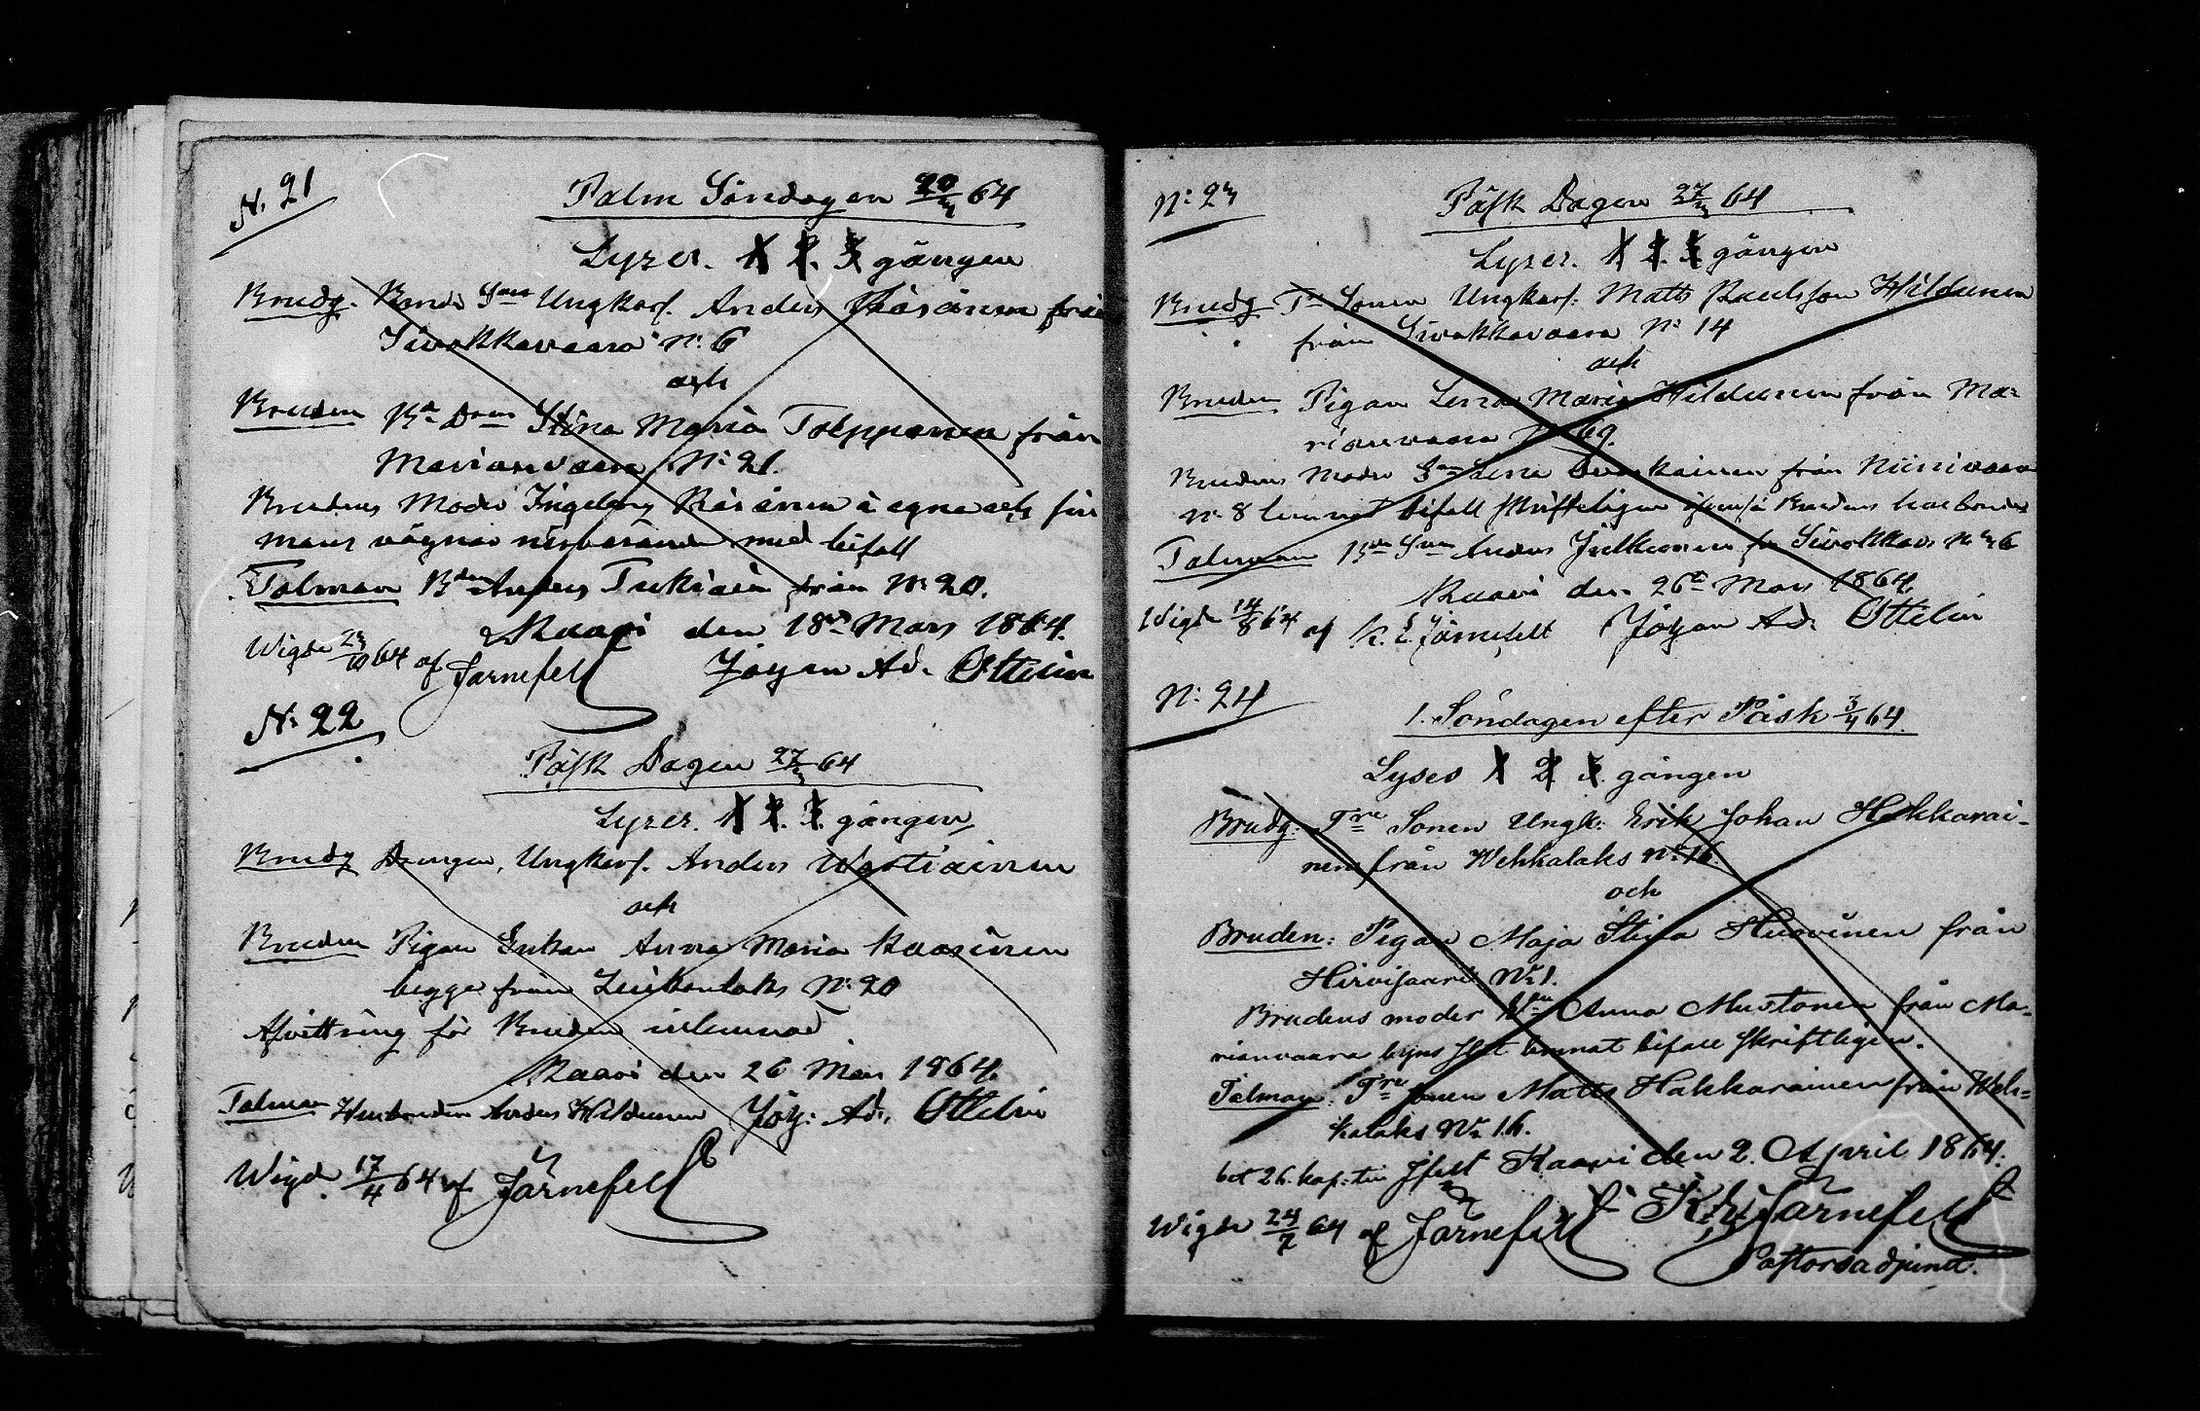 N. 21
Palm Söndagen 20/3 64
Lyses. 1 2. 3 gången
Brudg. Bonde Sonen Ungkarl. Anders Räsänen från
Siwakkavaara N: 6
och
Bruden Bde Dren Stina Maria Tolppanen från
Marianvaara N: 21.
Brudens Moder Ingeborg Räsänen å egna och sin
mans vägnar närvarande med bifall
Talman Bden Anders Tukiain från N: 20.
Kaavi den 18de Mars 1864.
Wigde 23/10 64 af Järnefelt Johan Ad. Ottelin
N: 22
Påsk Dagen 27/3 64
Lyses. 1 2. 3. gången
Brudg Drängen, Ungkarl. Anders Wartiainen
och
Bruden Pigan Enkan Anna Maria Kaasinen
begge från Luikonlaks N: 20
Afvittring för Bruden inlemnad
Kaavi den 26 Mars 1864.
Talman Husbonden Anders Hildunen Joh: Ad. Ottelin
Wigd. 17/4 64 af Järnefelt
N: 23
Påsk Dagen 27/3 64
Lyses. 1 2. 3. gången
Brudg Tre Sonen Ungkarl: Matts Paulsson Hildunen
från Siwakkavaara N: 14
och
Bruden Pigan Lena Maria Hildunen från Ma=
rianvaara N: 69.
Brudens Moder Lena från Niinivaara
N: 8 lemnat bifall skrifteligen Brudens
Talman Bde Son Anders Julkunen fr Siwakkav N: 36
Kaavi den 26de Mars 1864.
Wigde 14/8 64 af K. E. Järnefelt Johan Ad. Ottelin
N: 24
1. Söndagen efter Påsk 3/4 64.
Lyses 1 2 3. gången
Brudg: Tre Sonen Ungk: Erik Johan Hakkarai-
nen från Wehkalaks N: 16.
och
Bruden: Pigan Maja Stina Huovinen från
Hirvisaari N: 1.
Brudens moder Anna Mustonen från Ma-
rianvaara byns lemnat bifall skriftligen.
Talman: Tre Sonen Matts Hakkarainen från Weh=
kalaks N: 16.
bet 26. kop: till Kaavi den 2. April 1864.
Wigde 24/7 64 af Järnefelt K. E. Järnefelt
Pastorsadjunct.